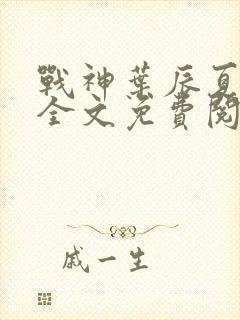 戰神葉辰夏
全文免費閱
戚一生